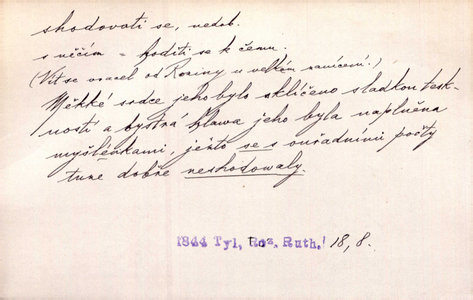 shodovati se, nedok.
s něčím = hoditi se k čemu.
(Vít se vracel od Rosiny u velkém zanícení.)
Měkké srdce jeho bylo skličeno sladkou tesk-
ností a bystrá hlava jeho byla naplněna
myšlénkami, ježto se s ouřadními počty
tuze dobře neshodovaly.
1844 Tyl, Roz. Ruth. 18, 8.